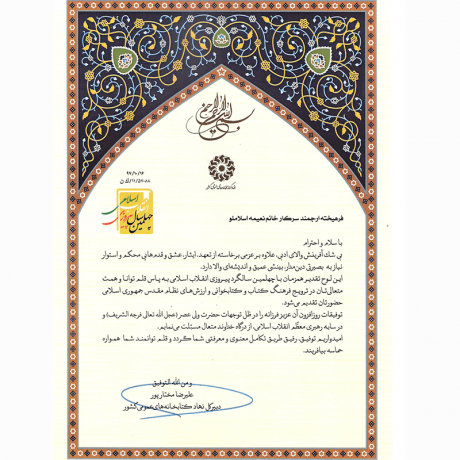 بسم الله الرحمن الرحیم
۹۷/۱۰/۱۶
چهلمین سال
فرهیخته ارجمند سرکار خانم نعیمه اسلاملو
با سلام و احترام
بی شک آفرینش والای ادبی، علاوه بر عزمی برخاسته از تعهد، ایثار، عشق و قدم‌هایی محکم و استوار
نیاز به بصیرتی دین‌مدار، بینشی عمیق و اندیشه‌ای والا دارد.
این لوح تقدیم همزمان با چهلمین سالگرد پیروزی انقلاب اسلامی به پاس قلم توانا و همت
متعالی‌تان در ترویج فرهنگ کتاب و کتابخوانی و ارزش‌های نظام مقدس جمهوری اسلامی
حضورتان تقدیم می‌شود.
توفیقات روزافزون آن عزیز فرزانه را در ظل توجهات حضرت ولی عصر (عجل الله تعالی فرجه الشریف) و
در سایه رهبری معظم انقلاب اسلامی، از درگاه خداوند متعال مسئلت می‌نمایم.
امیدواریم توفیق، رفیق طریق تکامل معنوی و معرفتی شما گردد و قلم توانمند شما همواره
حماسه بیافریند.
و من الله التوفیق
علیرضا مختارپور
دبیرکل نهاد کتابخانه‌های عمومی کشور